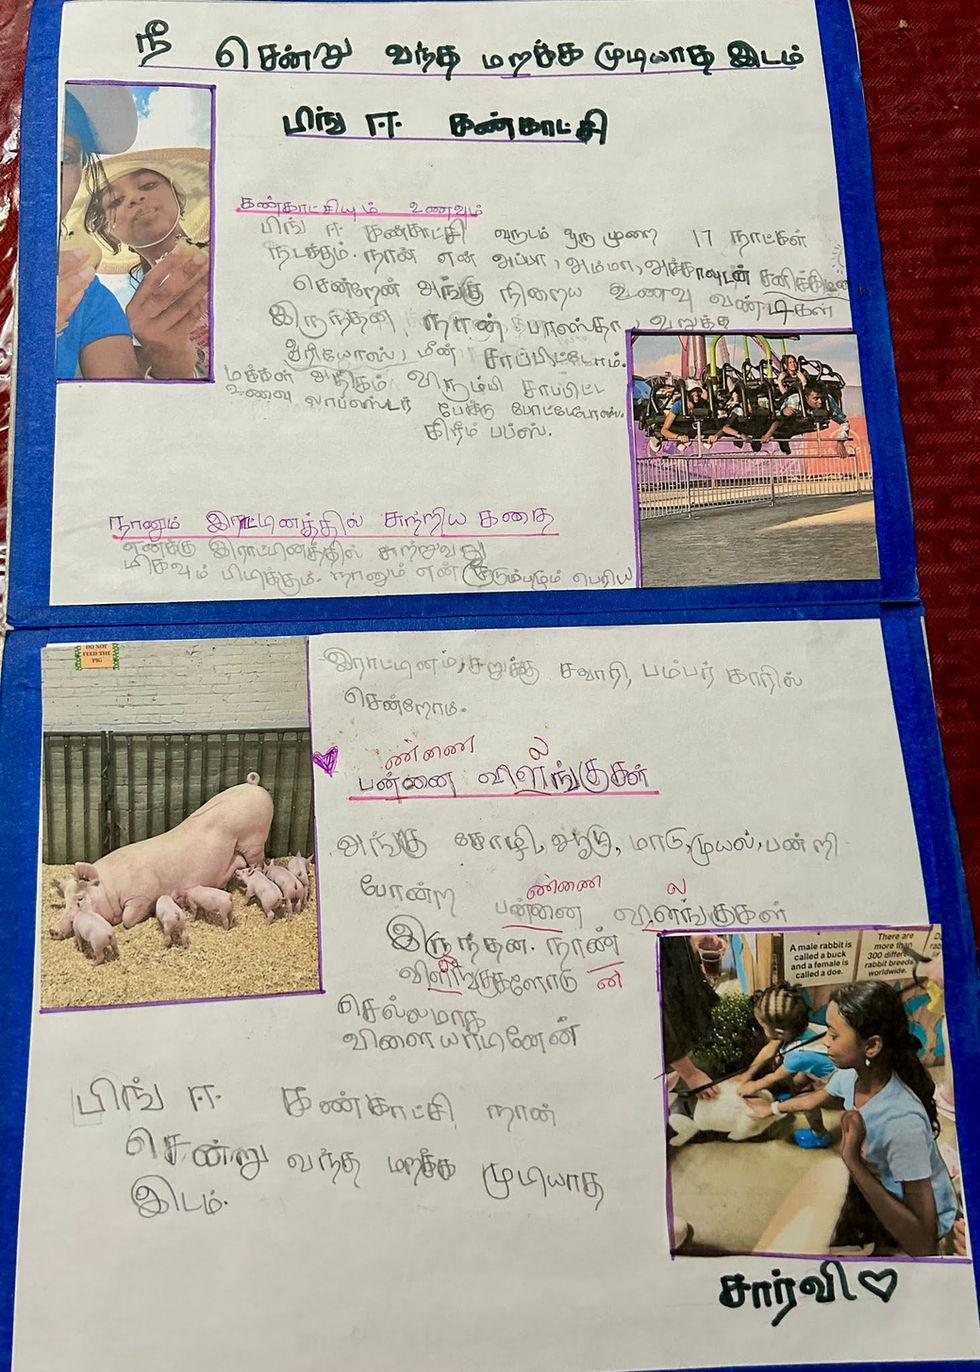 நீ சென்று வந்த மறக்க முடியாத இடம்
பிங் ஈ கண்காட்சி
கண்காட்சியும் உணவும்
பிங் ஈ கண்காட்சி வருடம் ஒரு முறை 17 நாட்கள்
நடக்கும். நான் என் அப்பா, அம்மா, அக்காவுடன் சனிக்கிழமை
சென்றேன் அங்கு நிறைய உணவு வண்டிகள்
இருந்தன நான் பாஸ்தா, வறுத்த
ஓரியோஸ், மீன் சாப்பிட்டோம்.
மக்கள் அதிகம் விரும்பி சாப்பிட்ட
உணவு லாப்ஸ்டர் பேக்டு போட்டேடோஸ்.
கிரீம் பப்ஸ்.
நானும் இராட்டினத்தில் சுற்றிய கதை
எனக்கு இராட்டினத்தில் சுற்றுவது
மிகவும் பிடிக்கும். நானும் என் குடும்பமும் பெரிய
DO NOT
FEED THE
PIG
இராட்டினம், சறுக்கு சவாரி, பம்பர் காரில்
சென்றோம்.
ண்ணை ல
பன்னை விளங்குகள்
அங்கு கோழி, ஆடு, மாடு, முயல், பன்றி
போன்ற ண்ணை ல
பன்னை விளங்குகள்
இருந்தன. நாண்
விளங்குகளோடு ன்
செல்லமாக
விளையாடினேன்
A male rabbit is
called a buck
and a female is
called a doe.
There are
more than
300 different
rabbit breeds
worldwide.
பிங் ஈ கண்காட்சி நான்
சென்று வந்த மறக்க முடியாத
இடம்.
சார்வி